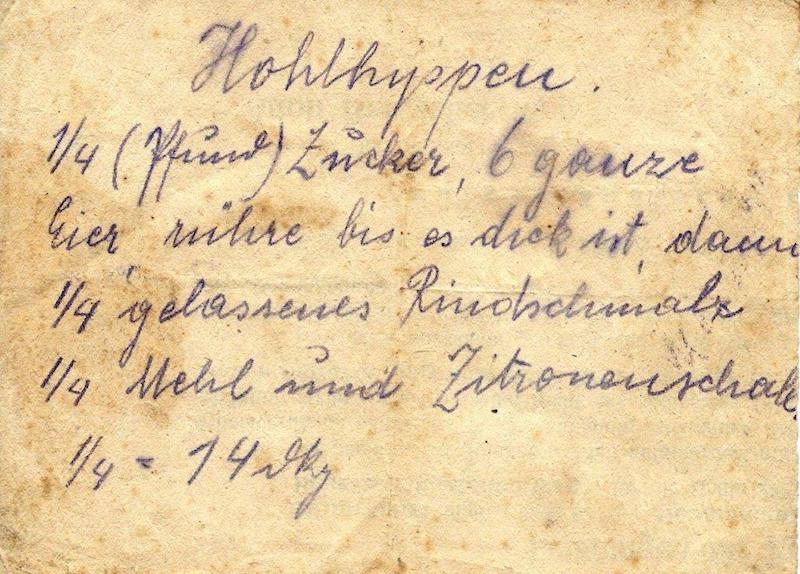 Hohlhyppen.
1/4 (Pfund) Zucker, 6 ganze
Eier, rühre bis es dick ist, dann
1/4 gelassenes Rindschmalz
1/4 Mehl und Zitronenschale.
1/4 = 14 dkg